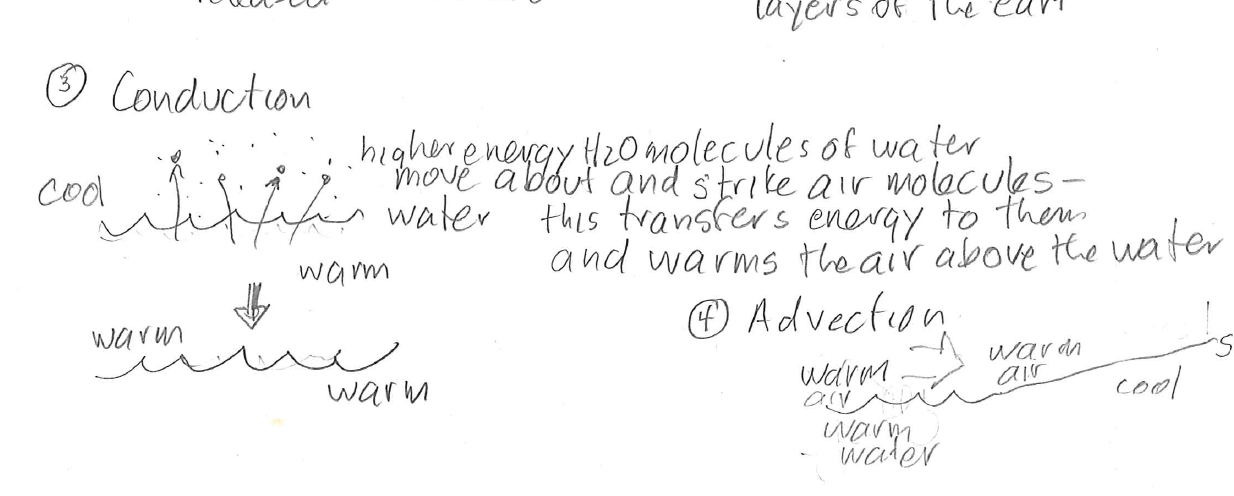 layers of the ear
③ Conduction
higher energy H2O molecules of water
cool move about and strike air molecules-
water this transfers energy to them
and warms the air above the water
warm
④ Advection
warm
warm
warm air
warm air
cool
warm water